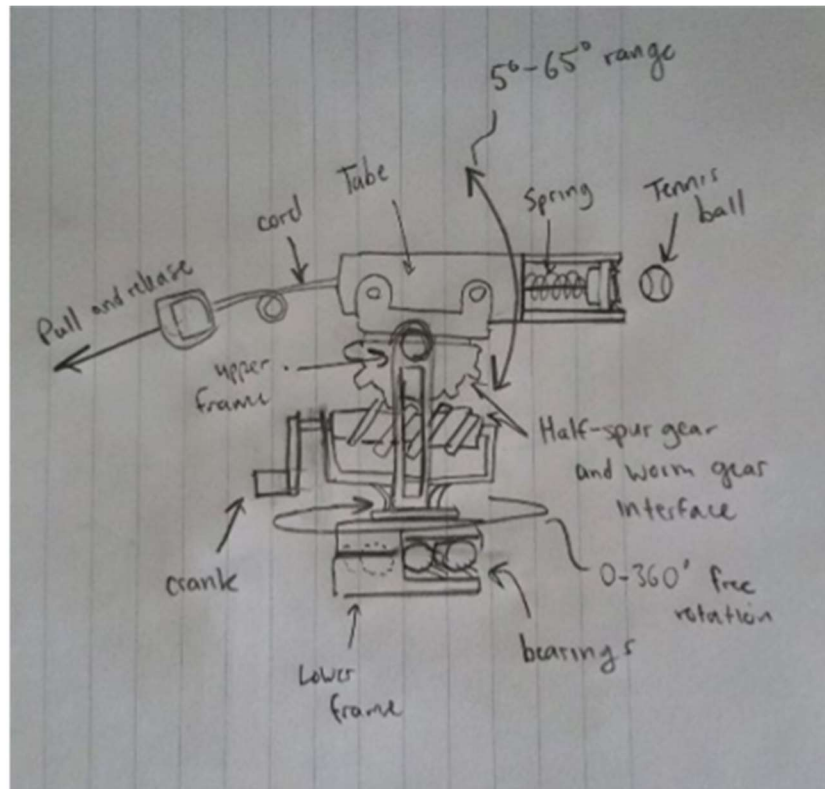 5°-65° range
Tube
Spring
Tennis
ball
cord
Pull and release
upper
frame
Half-spur gear
and worm gear
interface
crank
0-360° free
rotation
bearings
Lower
frame